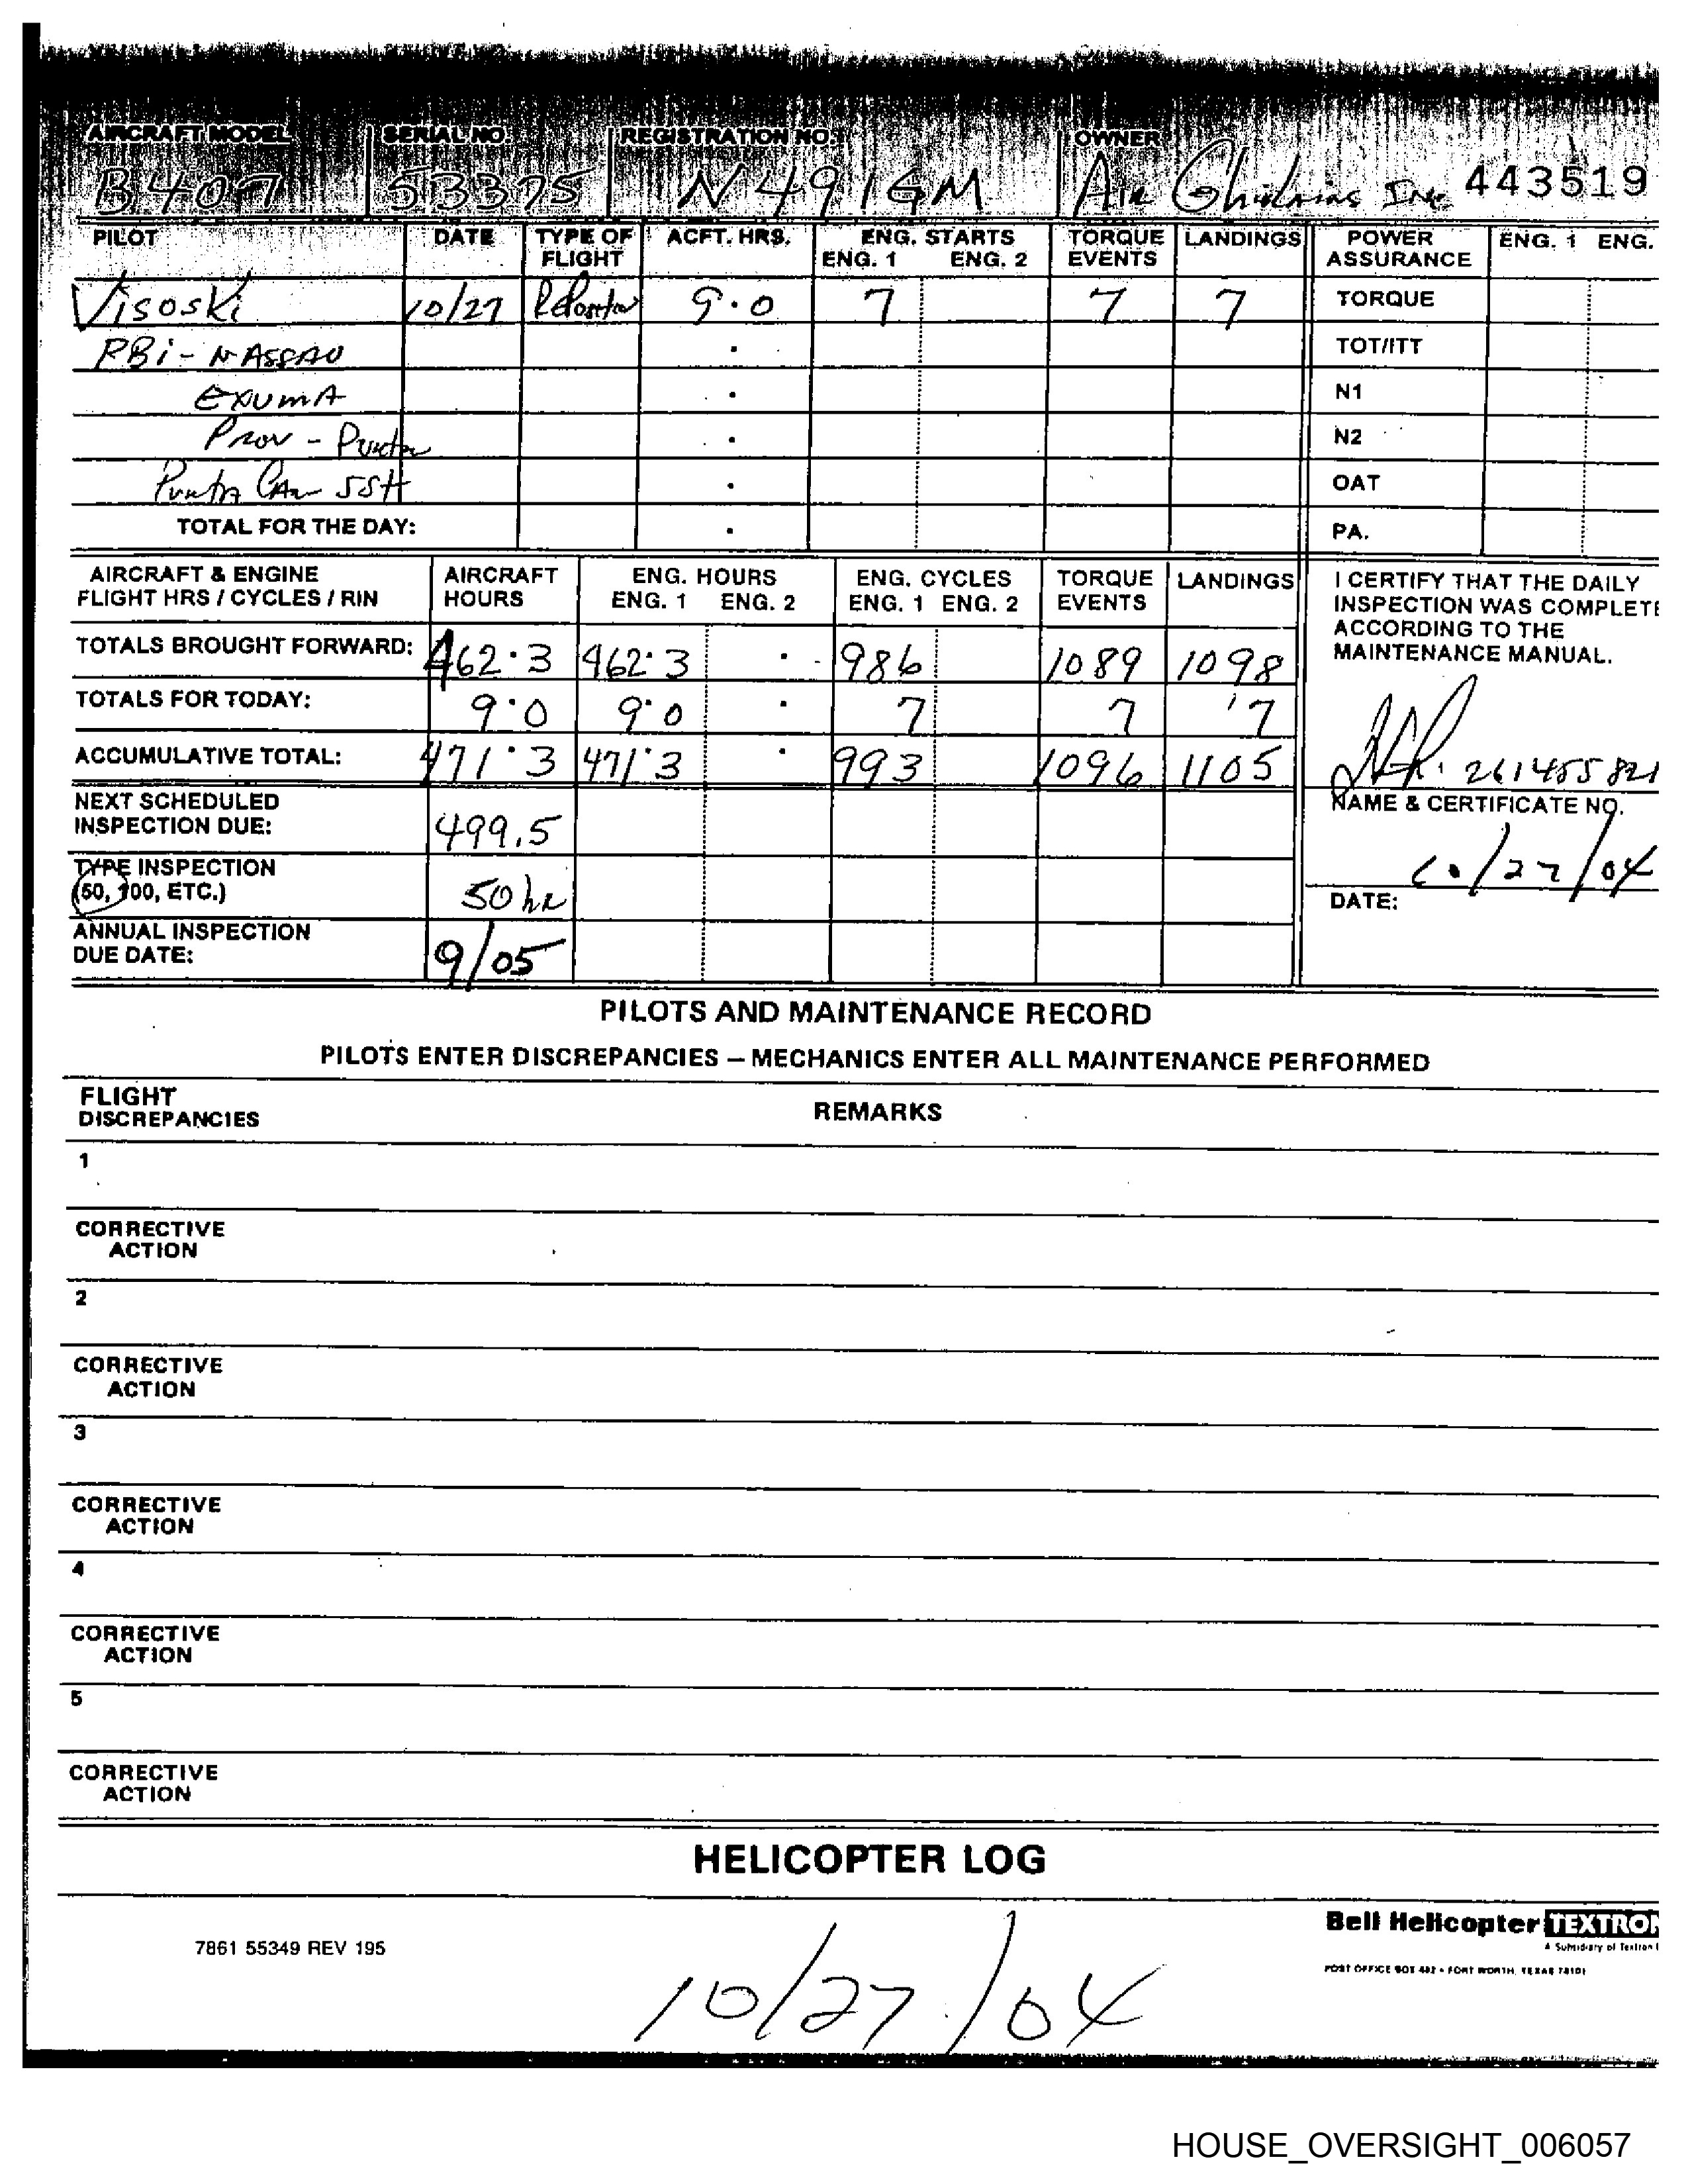 AIRCRAFT MODEL SERIAL NO. REGISTRATION NO. OWNER
B407 53375 N491GM Air Ghislaine Inc. 443519
PILOT DATE TYPE OF FLIGHT ACFT. HRS. ENG. STARTS ENG. 1 ENG. 2 TORQUE EVENTS LANDINGS POWER ASSURANCE ENG. 1 ENG.
Visoski 10/27 9.0 7 7 7 TORQUE
PBi - NASSAU TOT/ITT
EXUMA N1
Prov - Punta N2
Punta Can SSH OAT
TOTAL FOR THE DAY: PA.
AIRCRAFT & ENGINE FLIGHT HRS / CYCLES / RIN AIRCRAFT HOURS ENG. HOURS ENG. 1 ENG. 2 ENG. CYCLES ENG. 1 ENG. 2 TORQUE EVENTS LANDINGS
I CERTIFY THAT THE DAILY
INSPECTION WAS COMPLETE
ACCORDING TO THE
MAINTENANCE MANUAL.
TOTALS BROUGHT FORWARD: 462.3 462.3 986 1089 1098
TOTALS FOR TODAY: 9.0 9.0 7 7 7
ACCUMULATIVE TOTAL: 471.3 471.3 993 1096 1105
261485821
NAME & CERTIFICATE NO.
NEXT SCHEDULED
INSPECTION DUE: 499.5
TYPE INSPECTION
(50, 100, ETC.) 50 hr
10/27/04
DATE:
ANNUAL INSPECTION
DUE DATE: 9/05
PILOTS AND MAINTENANCE RECORD
PILOTS ENTER DISCREPANCIES – MECHANICS ENTER ALL MAINTENANCE PERFORMED
FLIGHT
DISCREPANCIES REMARKS
1
CORRECTIVE
ACTION
2
CORRECTIVE
ACTION
3
CORRECTIVE
ACTION
4
CORRECTIVE
ACTION
5
CORRECTIVE
ACTION
HELICOPTER LOG
7861 55349 REV 195
Bell Helicopter TEXTRON
A Subsidiary of Textron
POST OFFICE BOX 482 • FORT WORTH, TEXAS 76101
10/27/04
HOUSE_OVERSIGHT_006057